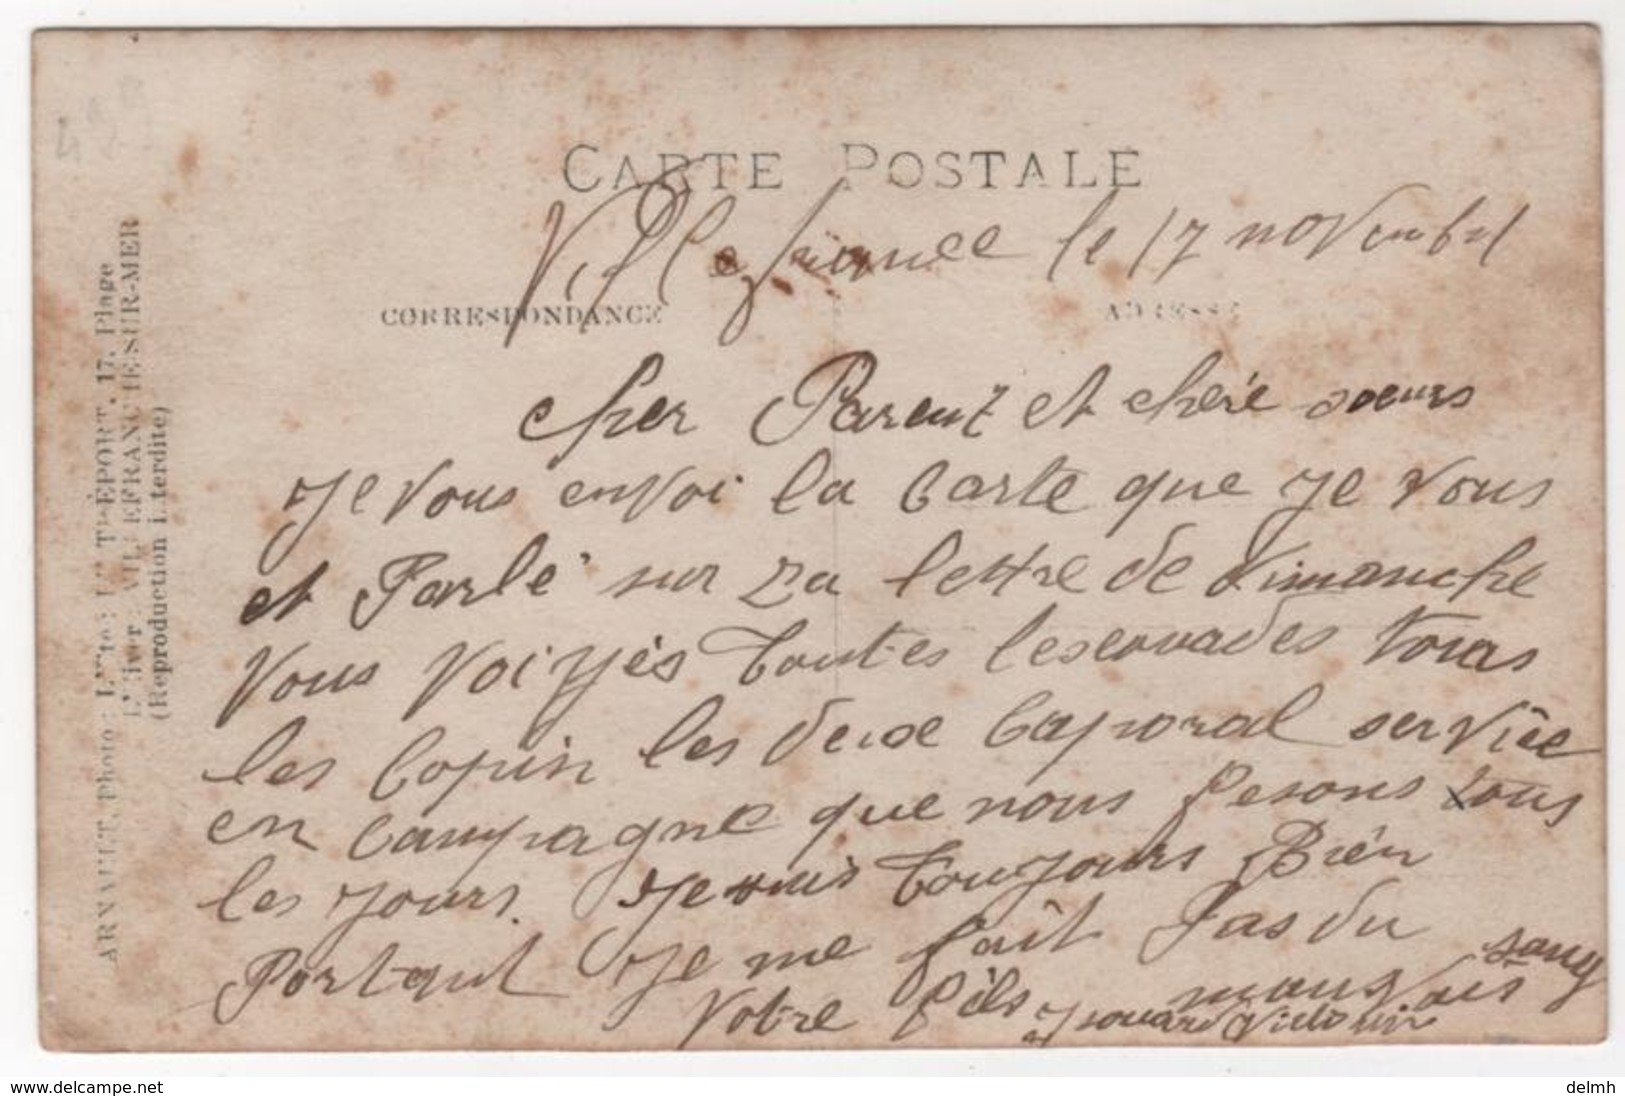 CARTE POSTALE
Villefrance le 17 novembre
CORRESPONDANCE
ADRESSE
cher Parent et chère soeurs
Je vous envoi la carte que je vous
et Parlé sur za lettre de dimanche
vous voiyyès toutes lesexouades tous
les copin les deux caporal service
en campagne que nous fesons tous
les jours. Je suis toujours Bien
Portant Je me fait Pas du
mauvais sang
Votre fils Isouard Victorin
ARNAULT, Photo: L'Eté: LE TRÉPORT, 17, Plage
L'Hiver: VILLEFRANCHE-SUR-MER
(Reproduction interdite)
www.delcampe.net
delmh